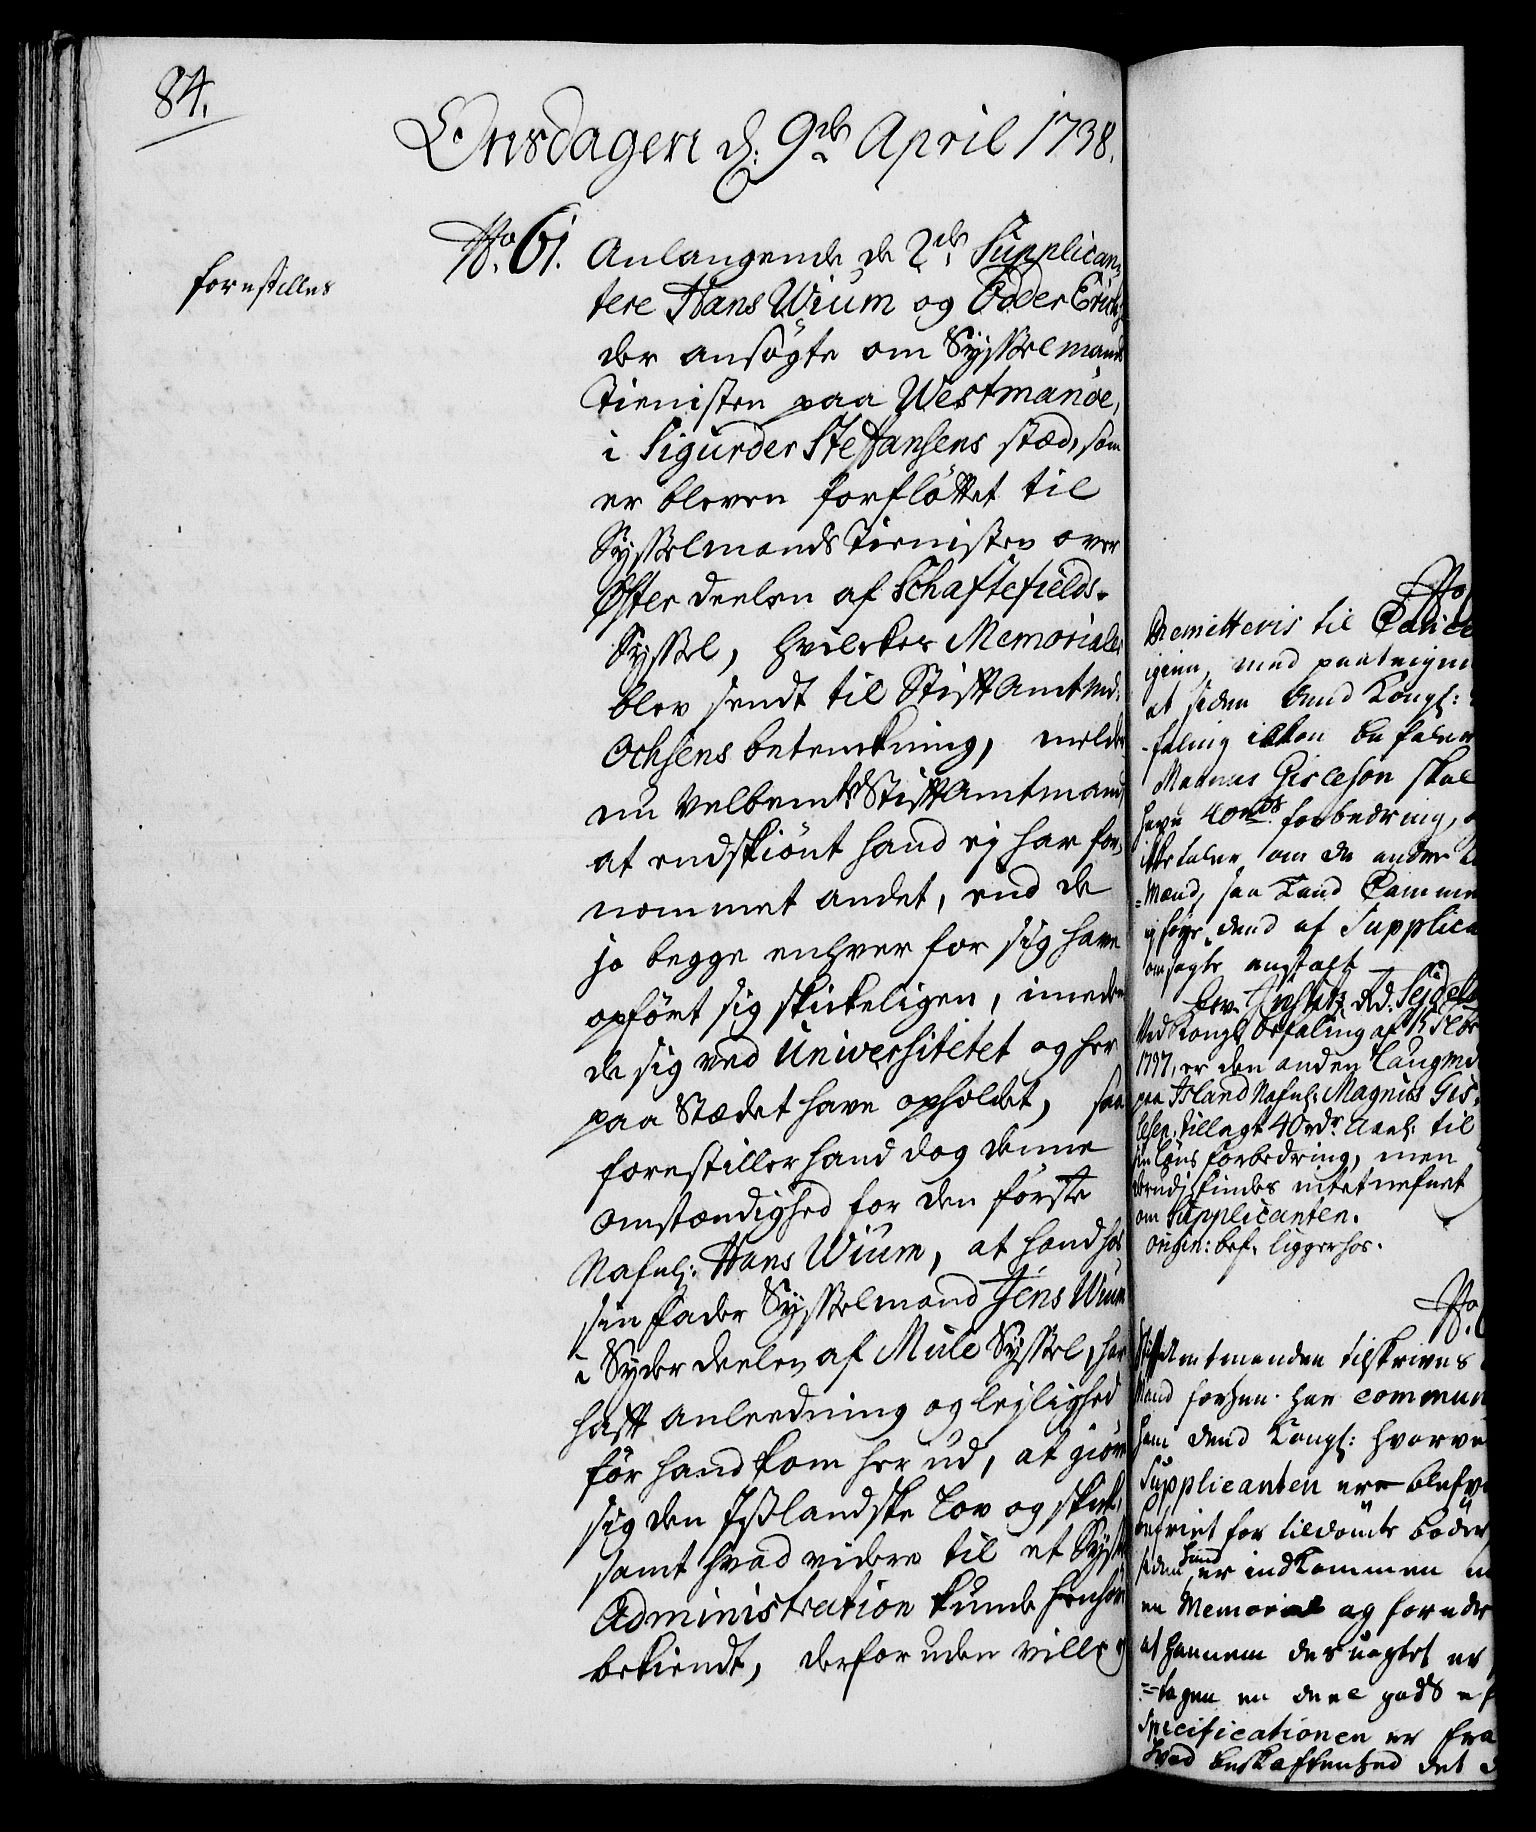 84.
Onsdagen d: 9de April 1738.
forestilles
No. 61. Anlangende de 2de Supplican-
tere Hans Wium og Odder Erichs:
der ansögte om Sysselmands
Tienisten paa Westmanöe,
i Sigurder Steffansens stæd, som
er bleven forflöttet til
Sysselmands Tienisten over
Öster deelen af Schaftefields-
Syssel, hvilckes Memorialer
blev sendt til Stiftamtmd:
Ochsens betenckning, melder
nu Velbemte Stiftamtmand,
at endskiönt hand ej har for-
nommet andet, end de
jo begge enhver for sig have
opfört sig skickeligen, imeden
de sig ved Universitetet og her
paa Stædet have opholdet, saa
forestiller hand dog denne
omstændighed for den förste
Nafnl: Hans Wium, at hand hos
sin Fader Sysselmand Jens Wium
i Syder deelen af Mule Syssel, har
haft anleedning og lejlighed
för hand kom her ud, at giöre
sig den Isslandske Lov og skick,
samt hvad videre til et Syssels
Administration kunde henhöre
bekiendt, derforuden ville
Remitteris til Cance
igien, med paategn
at siden dend Kongl:
-faling ikken befaler
Magnus Gisleson skal
have 40 rdr. forbedring,
ikke taler om de andre
-Mænd, saa kand Camme
ej föye dend af Supplica
ansøgte anstalt
Ved Kongl. befaling af
er den anden Laugmd
paa Island Nafnl: Magnus Gis-
lesen, tillagt 40 rdr. Aarl: til
sin Löns forbedring, men
derudj findes intet nefnet
om Supplicanten.
origin: bef. ligger hos.
Stiftamtmanden tilskrives
Mand forhen har commun
ham dend Kongl: hvorve
Supplicanten er blefv
befriet for tildömte böder,
siden hand er indkommen
en Memorial og
at hannem desuagtet er
-tagen en deel gods
Specificationen er fra
Hvad beskaffenhed det